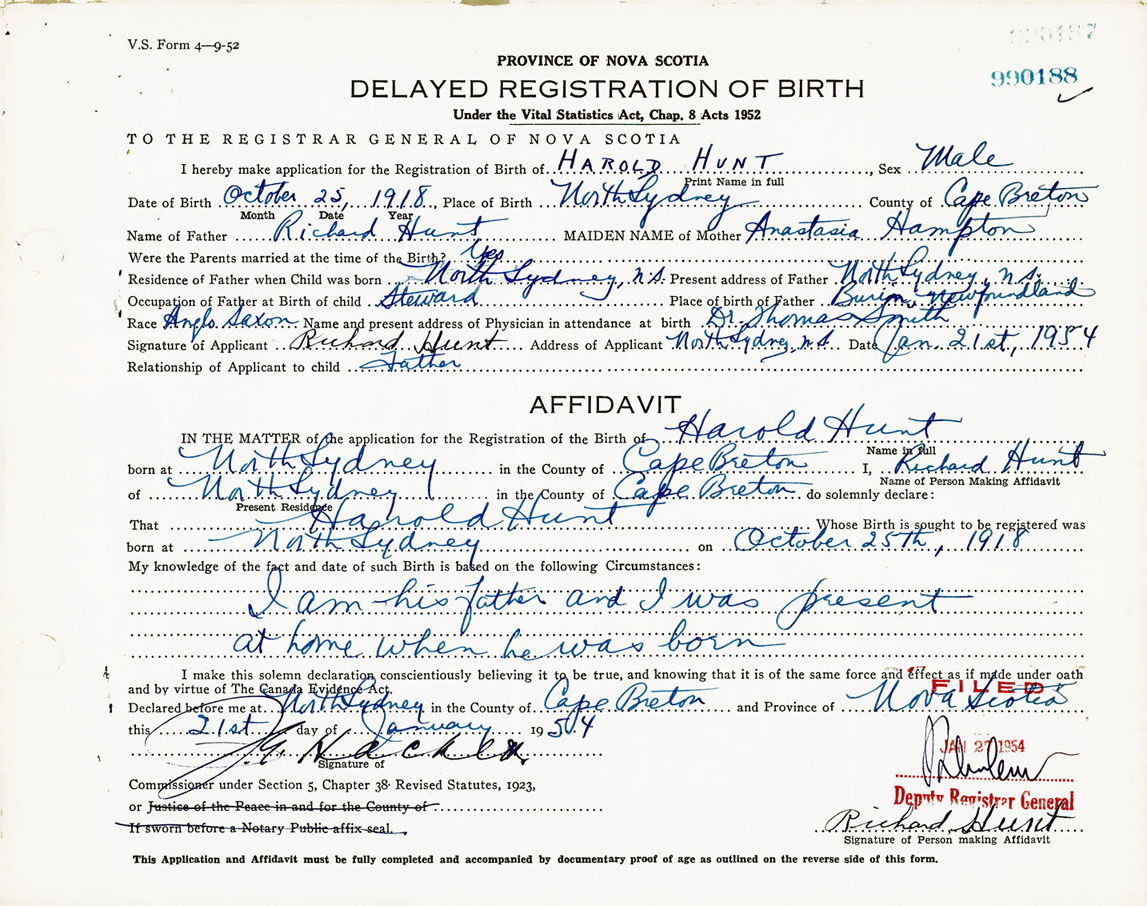 V.S. Form 4—9-52
990187
PROVINCE OF NOVA SCOTIA
990188
DELAYED REGISTRATION OF BIRTH
Under the Vital Statistics Act, Chap. 8 Acts 1952
TO THE REGISTRAR GENERAL OF NOVA SCOTIA
I hereby make application for the Registration of Birth of HAROLD HUNT, Sex Male
Print Name in full
Date of Birth October 25, 1918, Place of Birth North Sydney County of Cape Breton
Month Date Year
Name of Father Richard Hunt MAIDEN NAME of Mother Anastasia Hampton
Were the Parents married at the time of the Birth? Yes
Residence of Father when Child was born North Sydney, N.S. Present address of Father North Sydney, N.S.
Occupation of Father at Birth of child Steward Place of birth of Father Burin, Newfoundland
Race Anglo Saxon Name and present address of Physician in attendance at birth Dr. Thomas Smith
Signature of Applicant Richard Hunt Address of Applicant North Sydney, N.S. Date Jan 21st, 1954
Relationship of Applicant to child Father
AFFIDAVIT
IN THE MATTER of the application for the Registration of the Birth of Harold Hunt
Name in full
born at North Sydney in the County of Cape Breton I, Richard Hunt
Name of Person Making Affidavit
of North Sydney in the County of Cape Breton do solemnly declare:
Present Residence
That Harold Hunt Whose Birth is sought to be registered was
born at North Sydney on October 25th, 1918
My knowledge of the fact and date of such Birth is based on the following Circumstances:
I am his father and I was present
at home when he was born
I make this solemn declaration conscientiously believing it to be true, and knowing that it is of the same force and effect as if made under oath
and by virtue of The Canada Evidence Act.
FILED
Declared before me at North Sydney in the County of Cape Breton and Province of Nova Scotia
this 21st day of January 1954
JAN 27 1954
Signature of
Commissioner under Section 5, Chapter 38 Revised Statutes, 1923,
Deputy Registrar General
or Justice of the Peace in and for the County of
Richard Hunt
If sworn before a Notary Public affix seal.
Signature of Person making Affidavit
This Application and Affidavit must be fully completed and accompanied by documentary proof of age as outlined on the reverse side of this form.